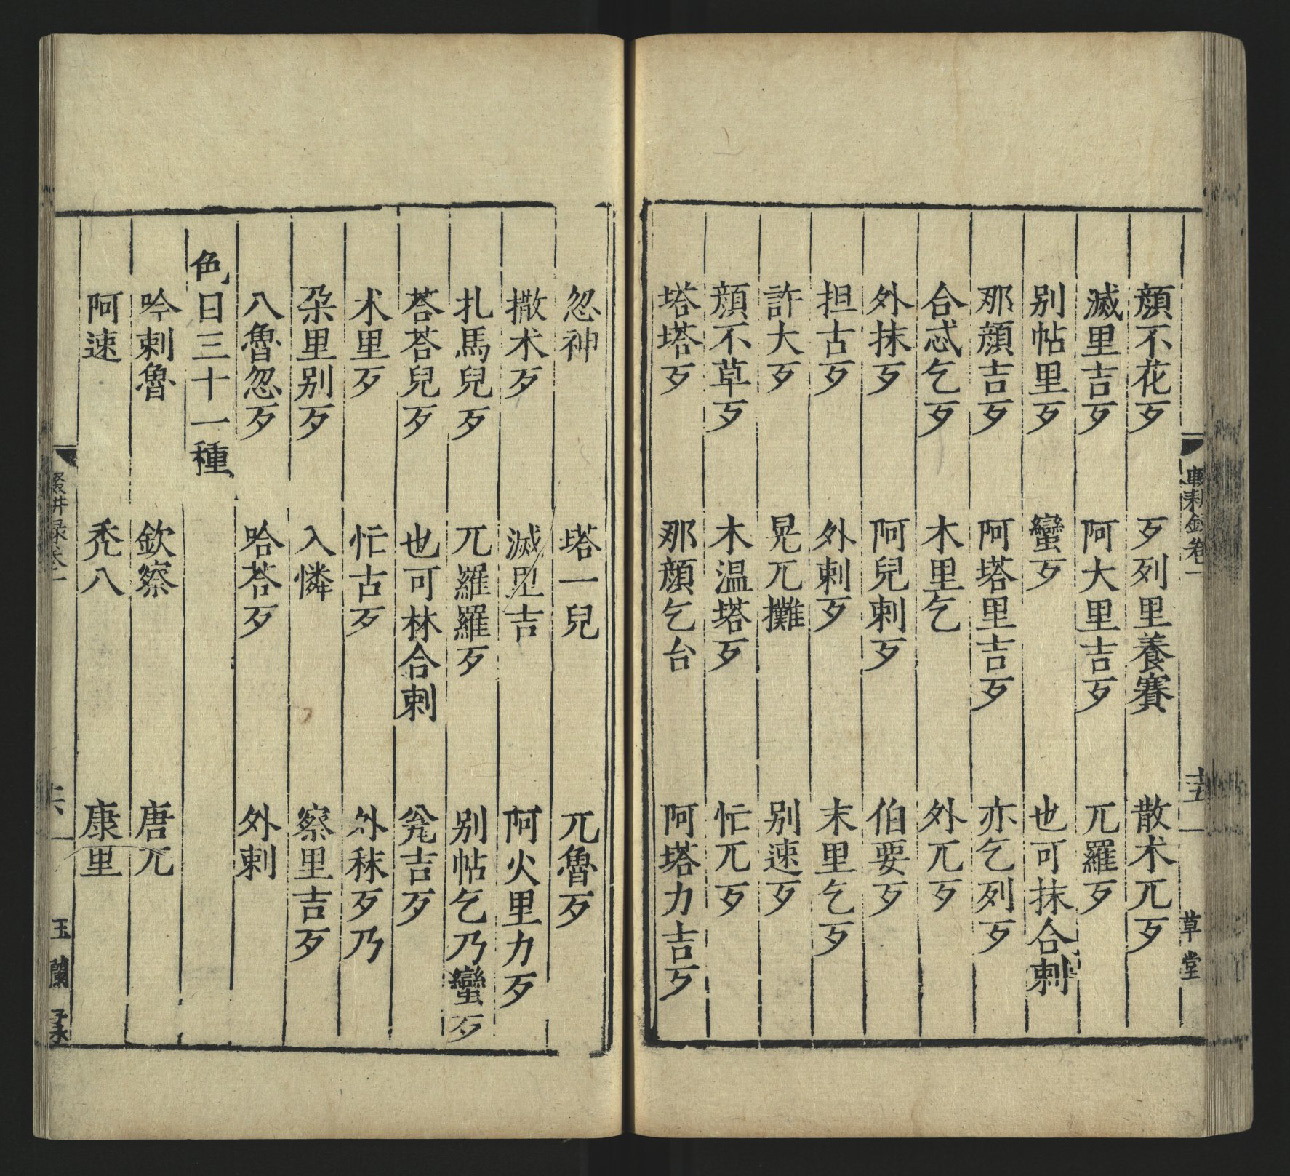 顔不花歹 歹列里養賽 散术兀歹
滅里吉歹 阿大里吉歹 兀羅歹
别帖里歹 蠻歹 也可抹合剌
那顔吉歹 阿塔里吉歹 亦乞列歹
合忒乞歹 木里乞 外兀歹
外抹歹 阿兒剌歹 伯要歹
担古歹 外剌歹 末里乞歹
許大歹 晃兀攤 别速歹
顔不草歹 木温塔歹 忙兀歹
塔塔歹 那顔乞台 阿塔力吉歹
忽神 塔一兒 兀魯歹
撒术歹 滅里吉 阿火里力歹
扎馬兒歹 兀羅羅歹 别帖乞乃蠻歹
荅荅兒歹 也可林合剌 瓮吉歹
术里歹 忙古歹 外秣歹乃
朶里别歹 入憐 察里吉歹
八魯忽歹 哈荅歹 外剌
色目三十一種
哈剌魯 欽察 唐兀
阿速 禿八 康里
輟耕錄卷一
十五
草堂
輟耕録卷一
十六
玉蘭